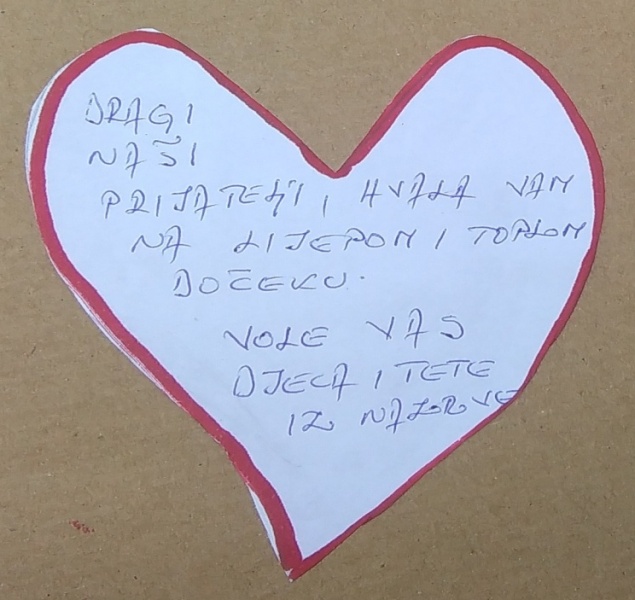 DRAGI
NAŠI
PRIJATELJI, HVALA VAM
NA LIJEPOM I TOPLOM
DOČEKU.
VOLE VAS
DJECA I TETE
IZ